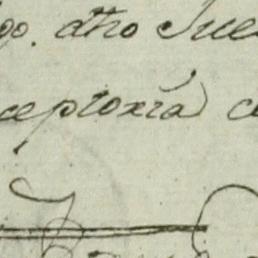 go. dho Jue
ceptoria c